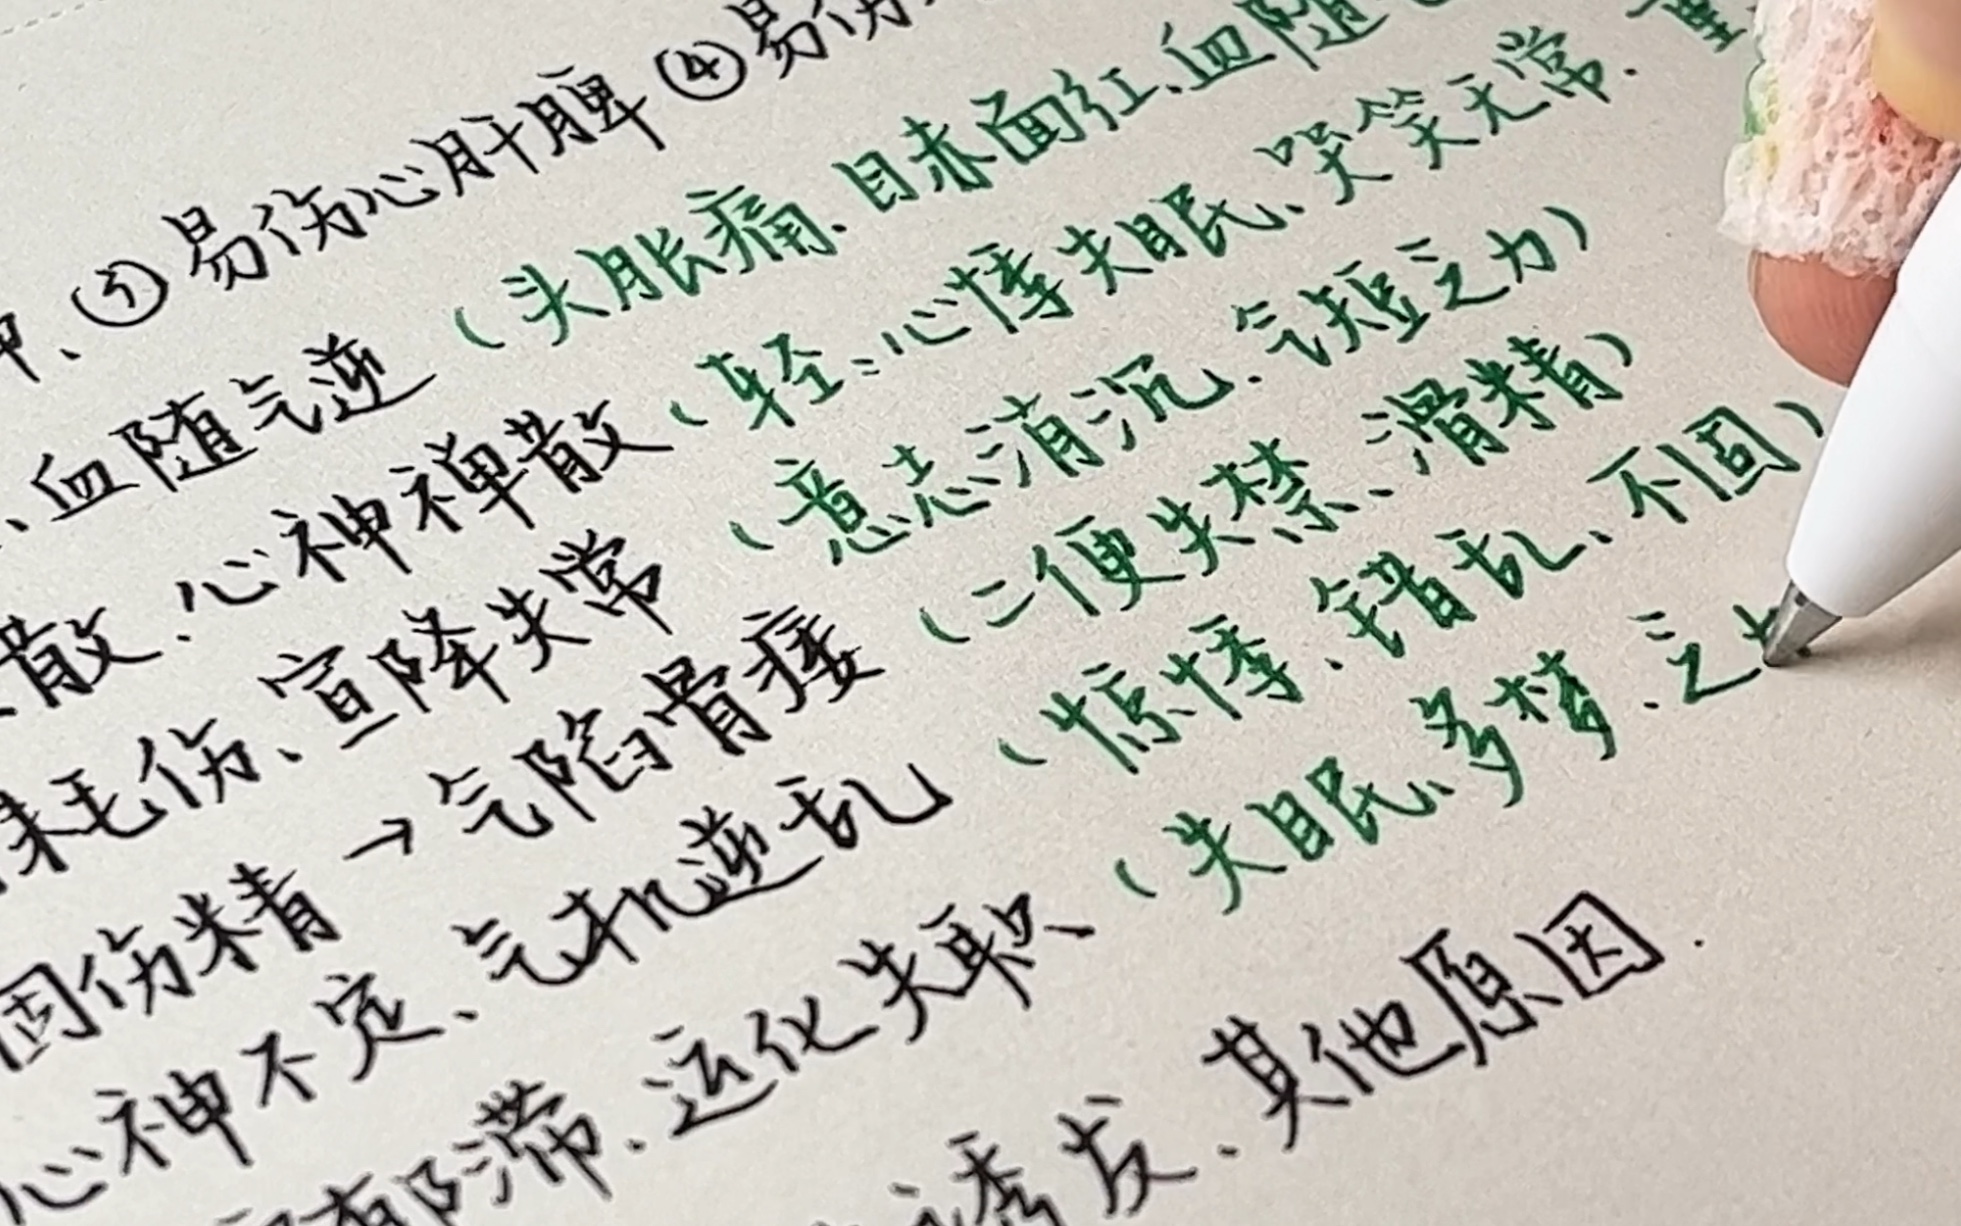 、③易伤心肝脾④易伤
、血随气逆(头胀痛、目赤面红、血随
散、心神禅散(轻:心悸失眠、哭笑无常、重
毛伤、宣降失常(意志消沉、气短乏力)
固伤精→气陷骨痿(二便失禁、滑精)
心神不定、气机逆乱(惊悸、错乱、不固)
郁滞、运化失职(失眠、多梦、乏
诱发、其他原因